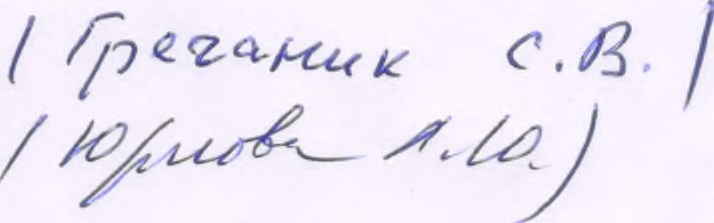 / Гречаник С.В. /
/ Юрлова А.Ю. /